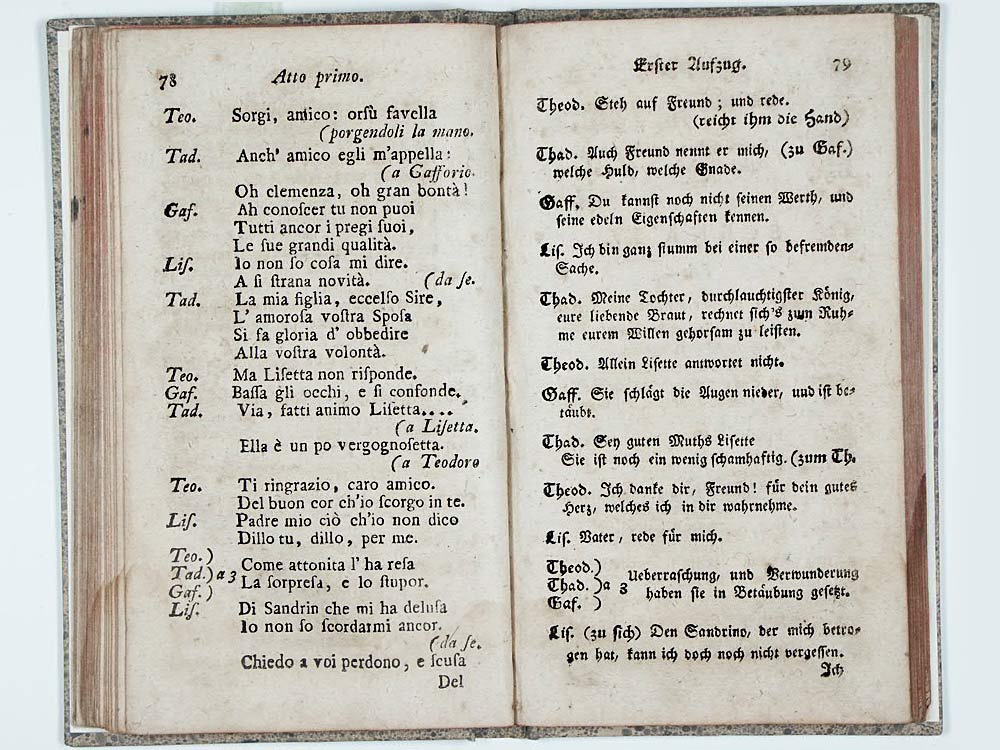 78
Atto primo.
Teo. Sorgi, amico: orsù favella
(porgendoli la mano.
Tad. Anch' amico egli m'appella:
(a Gafforio.
Oh clemenza, oh gran bontà!
Gaf. Ah conoſcer tu non puoi
Tutti ancor i pregi ſuoi,
Le ſue grandi qualità.
Liſ. Io non ſo coſa mi dire.
A ſi ſtrana novità. (da ſe.
Tad. La mia figlia, eccelſo Sire,
L' amoroſa voſtra Spoſa
Si fa gloria d' obbedire
Alla voſtra volontà.
Teo. Ma Liſetta non riſponde.
Gaf. Baſſa gli occhi, e ſi confonde.
Tad. Via, fatti animo Liſetta....
(a Liſetta.
Ella è un po vergognoſetta.
(a Teodoro
Teo. Ti ringrazio, caro amico.
Del buon cor ch'io ſcorgo in te.
Liſ. Padre mio ciò ch'io non dico
Dillo tu, dillo, per me.
Teo.)
Tad.) a 3 Come attonita l' ha reſa
Gaf.) La ſorpreſa, e lo ſtupor.
Liſ. Di Sandrin che mi ha deluſa
Io non ſo ſcordarmi ancor.
(da ſe.
Chiedo a voi perdono, e ſcuſa
Del
Erſter Aufzug.
79
Theod. Steh auf Freund; und rede.
(reicht ihm die Hand)
Thad. Auch Freund nennt er mich, (zu Gaf.)
welche Huld, welche Gnade.
Gaff. Du kannſt noch nicht ſeinen Werth, und
ſeine edeln Eigenſchaften kennen.
Liſ. Ich bin ganz ſtumm bei einer ſo befremden-
Sache.
Thad. Meine Tochter, durchlauchtigſter König,
eure liebende Braut, rechnet ſich's zum Ruh-
me eurem Willen gehorſam zu leiſten.
Theod. Allein Liſette antwortet nicht.
Gaff. Sie ſchlägt die Augen nieder, und iſt be-
täubt.
Thad. Sey guten Muths Liſette
Sie iſt noch ein wenig ſchamhaftig. (zum Th.
Theod. Ich danke dir, Freund! für dein gutes
Herz, welches ich in dir wahrnehme.
Liſ. Vater, rede für mich.
Theod.)
Thad. )a 3 Ueberraſchung, und Verwunderung
Gaf. ) haben ſie in Betäubung geſetzt.
Liſ. (zu ſich) Den Sandrino, der mich betro-
gen hat, kann ich doch noch nicht vergeſſen.
Ich